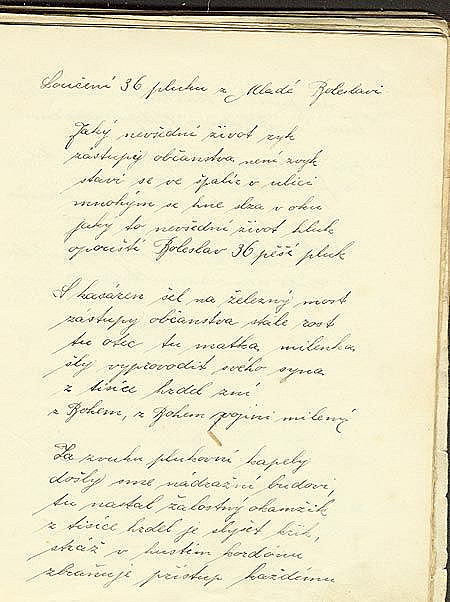 Loučení 36 pluku z Mladé Boleslavi
Jaký nevšední život zyk
zástupy občanstva není zvyk
staví se ve špalír v ulici
mnohým se hne slza v oku
jaký to nevšední život hluk
opouští Boleslav 36 pěší pluk
S kasáren šel na železný most
zástupy občanstva stále rost
tu otec tu matka milenka
šly vyprovodit svého syna
z tisíce hrdel zní
z Bohem, z Bohem pojini milený
Za zvuku plukovní kapely
došly sme nádražní budovi,
tu nastal žalostný okamžik
z tisíce hrdel je slyšet křik,
stráž v hustém kordónu
zbraňuje přístup každému